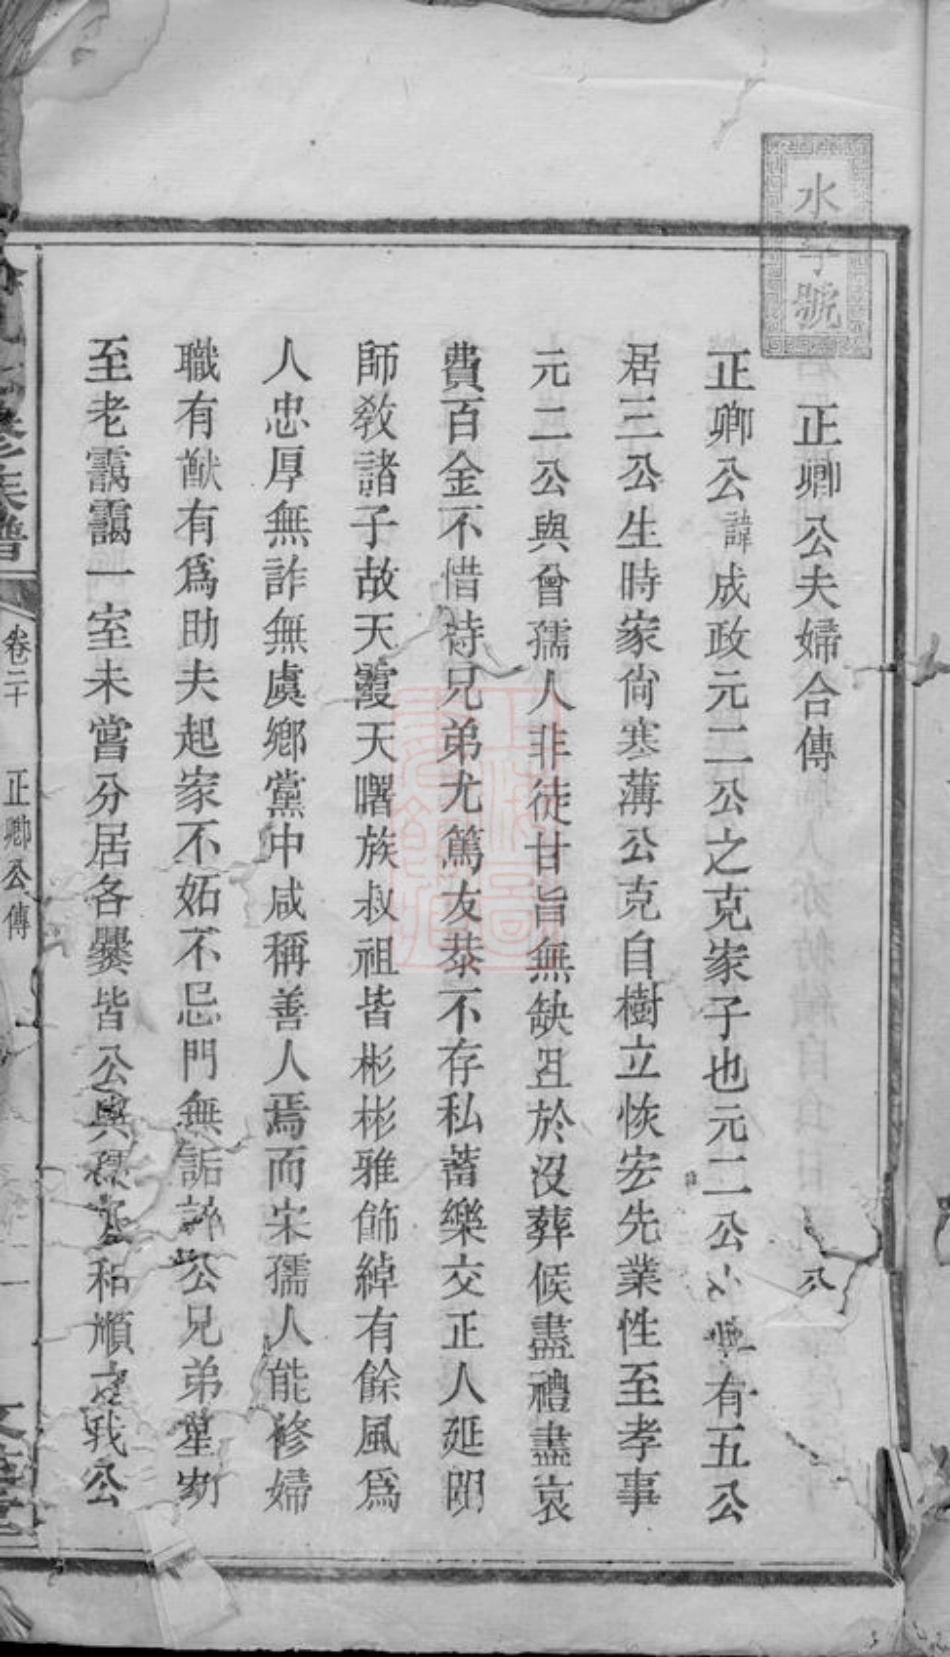 水字號
正卿公夫婦合傳
正卿公諱成政元二公之克家子也元二公有五公
居三公生時家尙寒薄公克自樹立恢宏先業性至孝事
元二公與曾孺人非徒甘旨無缺且於沒葬候盡禮盡哀
費百金不惜待兄弟尤篤友恭不存私蓄樂交正人延明
師敎諸子故天霞天曙族叔祖皆彬彬雅飭綽有餘風爲
人忠厚無詐無虞鄉黨中咸稱善人焉而宋孺人能修婦
職有猷有爲助夫起家不妬不忌門無詬誶公兄弟輩
至老靄靄一室未嘗分居各爨皆公與和順之我公
族譜
卷二十
正卿公傳
一